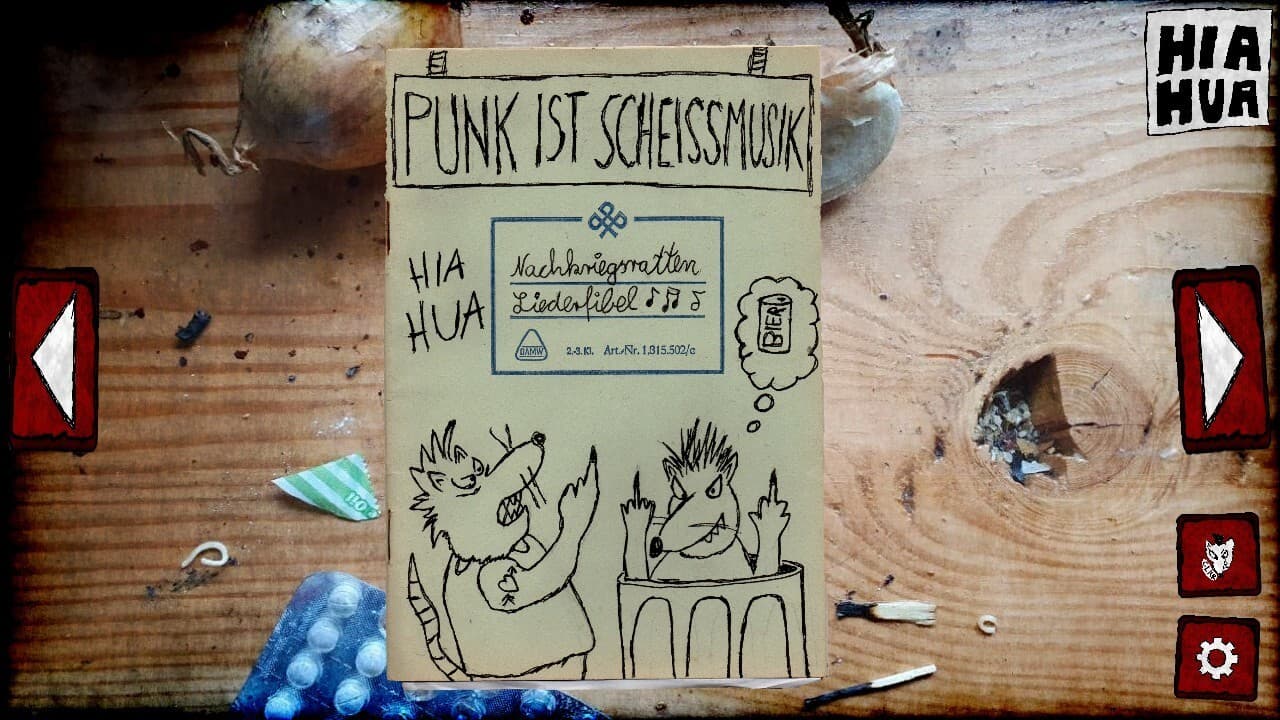 HIA
HUA
PUNK IST SCHEISSMUSIK
HIA
HUA
Nachkriegsratten
Liederfibel
BIER!
DAMW 2.-3. Kl. Art.-Nr. 1.315.502/c